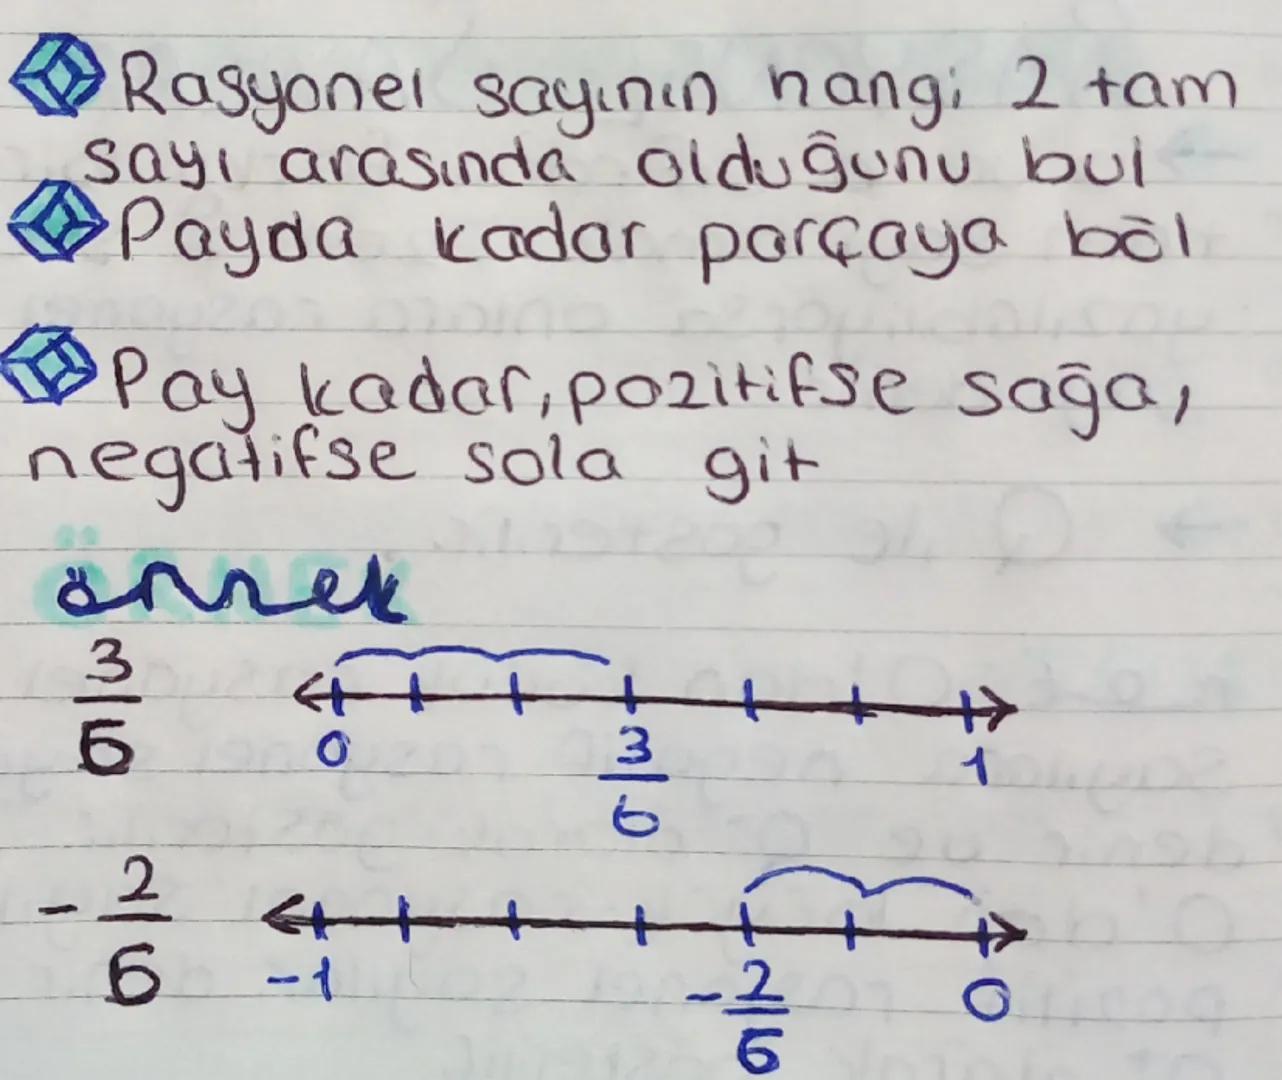 Rasyonel sayının hangi 2 tam
sayı arasında olduğunu bul
Payda kadar parçaya böl
Pay kadar, pozitifse sağa,
negatifse sola git
örnek
3/6
0 3/6 1
-2/6
-1 -2/6 0